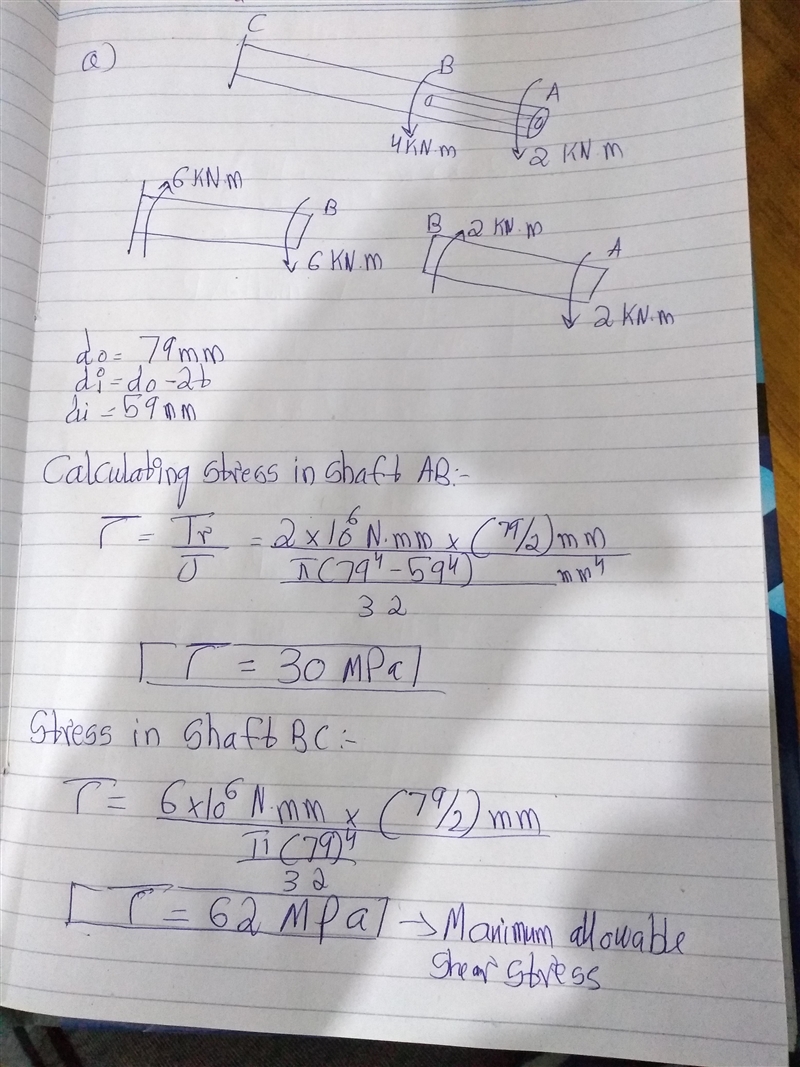 a)
C
B
A
4KN.m
2 KN.m
6 KN.m
B
6 KN.m
B 2 KN.m
A
2 KN.m
do = 79mm
di = do - 2t
di = 59 mm
Calculating stress in shaft AB:-
τ = Tr/J = 2 × 10⁶ N.mm × (79/2) mm / π(79⁴ - 59⁴)/32 mm⁴
τ = 30 MPa
Stress in shaft BC:-
τ = 6 × 10⁶ N.mm × (79/2) mm / π(79)⁴/32
τ = 62 MPa → Manimum allowable
Shear stress